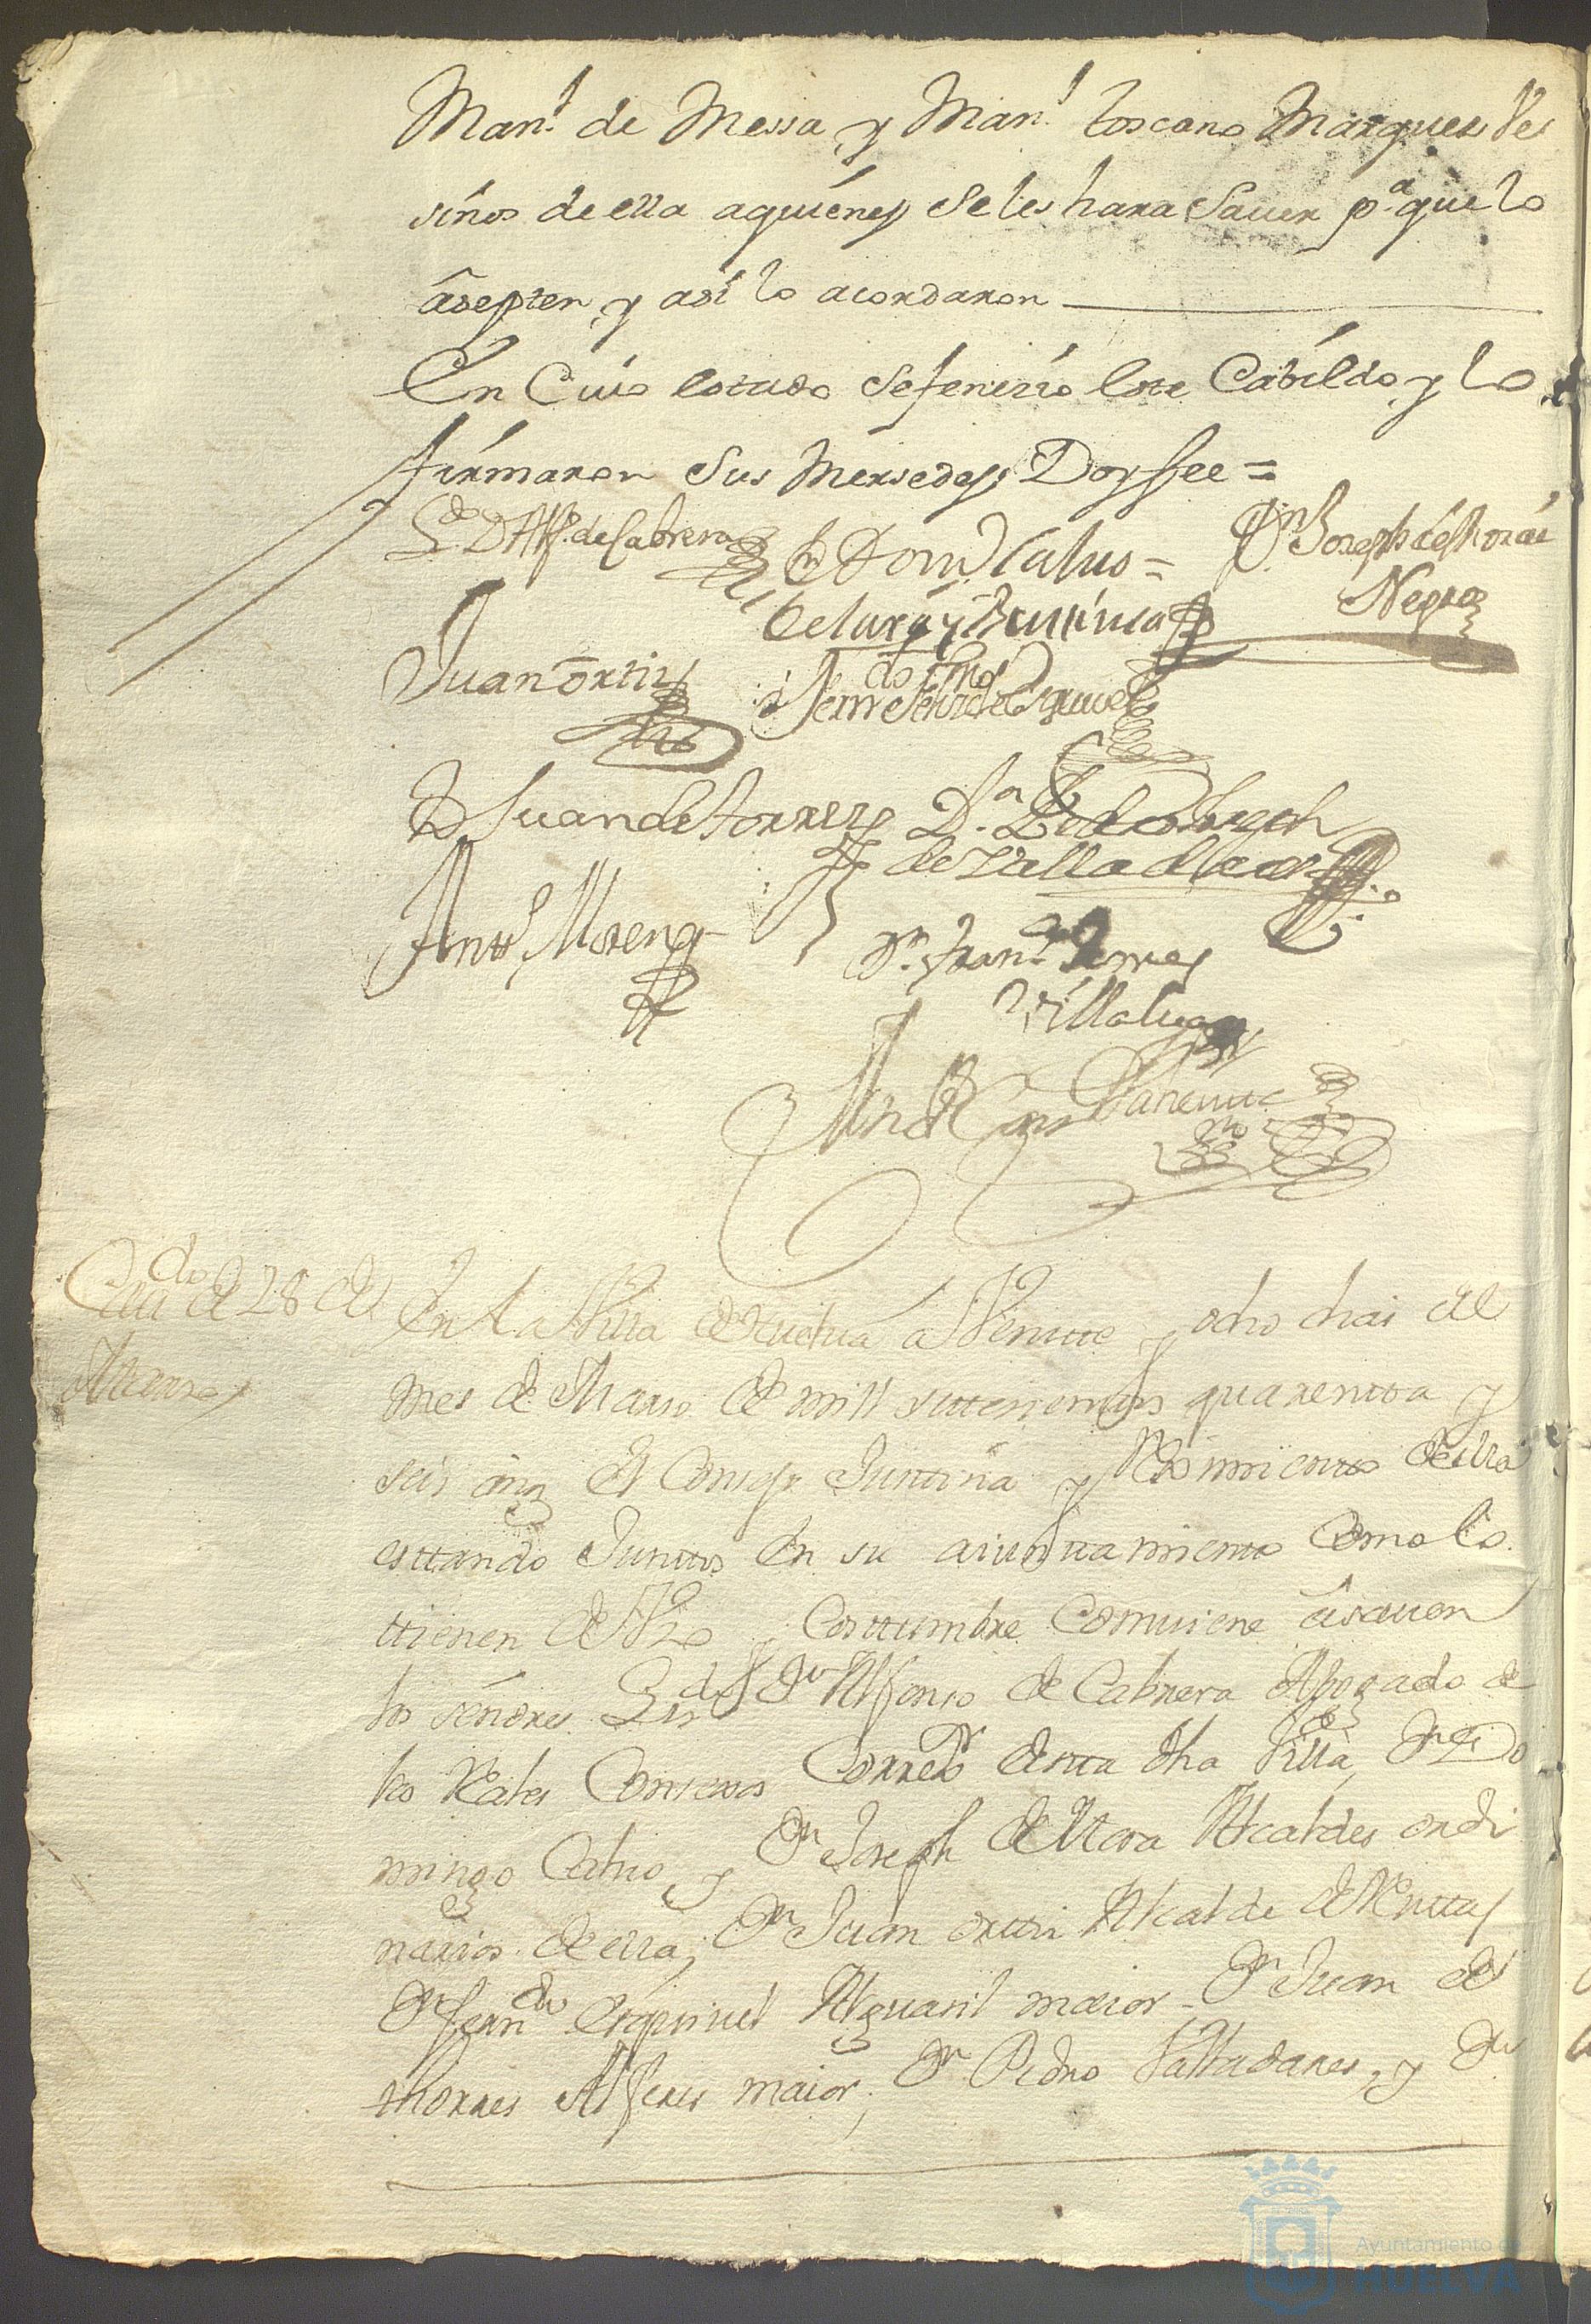 Man.l de Messa y Man.l toscano Marques Ve
sinos de ella aquienes Se les hara Saver p.a que lo
asepten y asi lo acordaron
En Cuio estado Sefenesio este Cabildo y lo
firmaron Sus Mersedes; Doy fee =
L.do D Alf.o de Cabrera
D Dom.o Caluo =
D.n Joseph de Mora
Negro
Juan ortiz
Fern.do
Esquivel
D Juan de torres
D.n Pedro
de Valladares
Ant.o Moreno
D.n Fran.co
Villa
Cau.do de 28 de
Marzo
En la Villa de Huelua a Veintte y ocho dias del
mes de Marso de mill settesienttos quarentta y
seis años el Consejo Justtisia y Reximientto de ella
esttando Junttos en su aiunttamientto Como lo
ttienen de Vso y Costtumbre Comuiene âsauer
los señores Lis.do D.n Alfonso de Cabrera Abogado de
los Rales Consexos Correx.r desta dha Villa, D.n Do
mingo Caluo, y D.n Joseph de Mora Alcaldes ordi
narios de ella; D.n Juan orttis Alcalde de Renttas
D.n Fern.do Esquiuel Alguasil maior D.n Juan de
thorres Alferes maior; D.n Pedro Valladares, y D.n
Ayuntamiento de
HUELVA